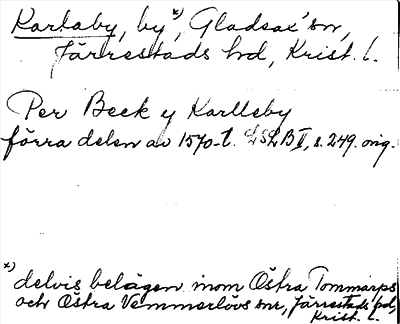 Karlaby, by *), Gladsax' sn,
Järrestads hd, Krist. l.
Per Beck y Karlleby
förra delen av 1570-t. LSLB II, s. 249. orig.
*) delvis belägen inom Östra Tommarps
och Östra Vemmerlövs snr, Järrestads hd,
Krist. l.